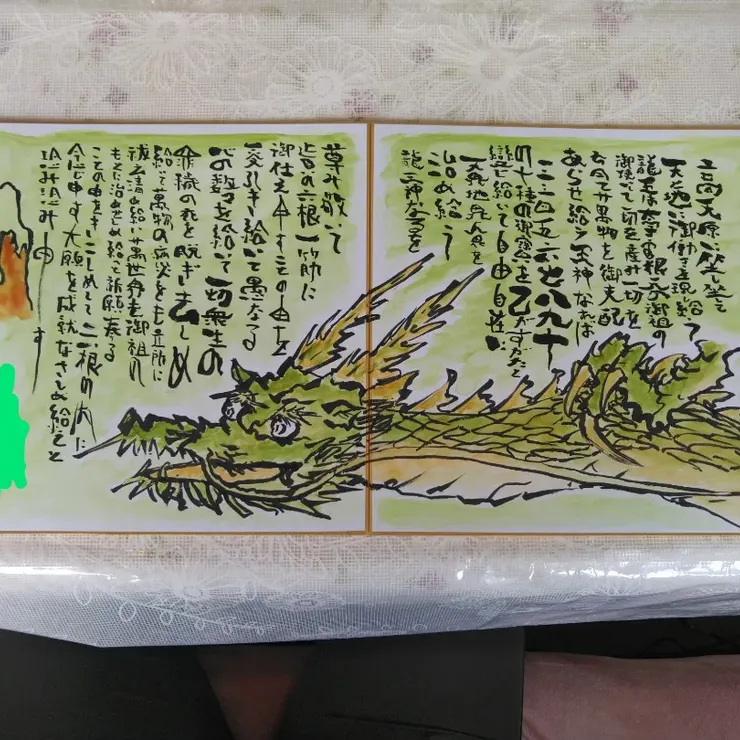 高天原に坐し坐して
天と地に御働きを現し給う
龍王は大宇宙根元の御祖の
御使いにして一切を産み一切を
育て萬物を御支配
あらせ給う王神なれば
一二三四五六七八九十
の十種の御寶を己がすがたと
變じ給いて自由自在に
天界地界人界を
治め給う
龍王神なるを
尊み敬いて
眞の六根一筋に
御仕え申すことの由を
受引き給いて愚かなる
心の数々を給いて一切衆生の
罪穢の衣を脱ぎ去らしめ
給いて萬物の病災をも立所に
祓い清め給い萬世界も御祖の
もとに治めせしめ給へと祈願奉る
ことの由をきこしめして六根の内に
念じ申す大願を成就なさしめ給えと
恐み恐み白す